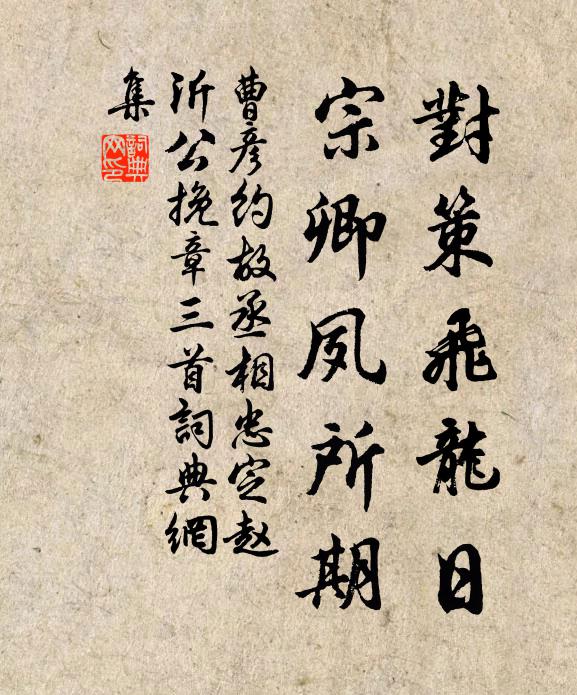 對策飛龍日
宗卿夙所期
曹彦約故丞相忠定趙
沂公挽章三首詞典網
集
詞典網印